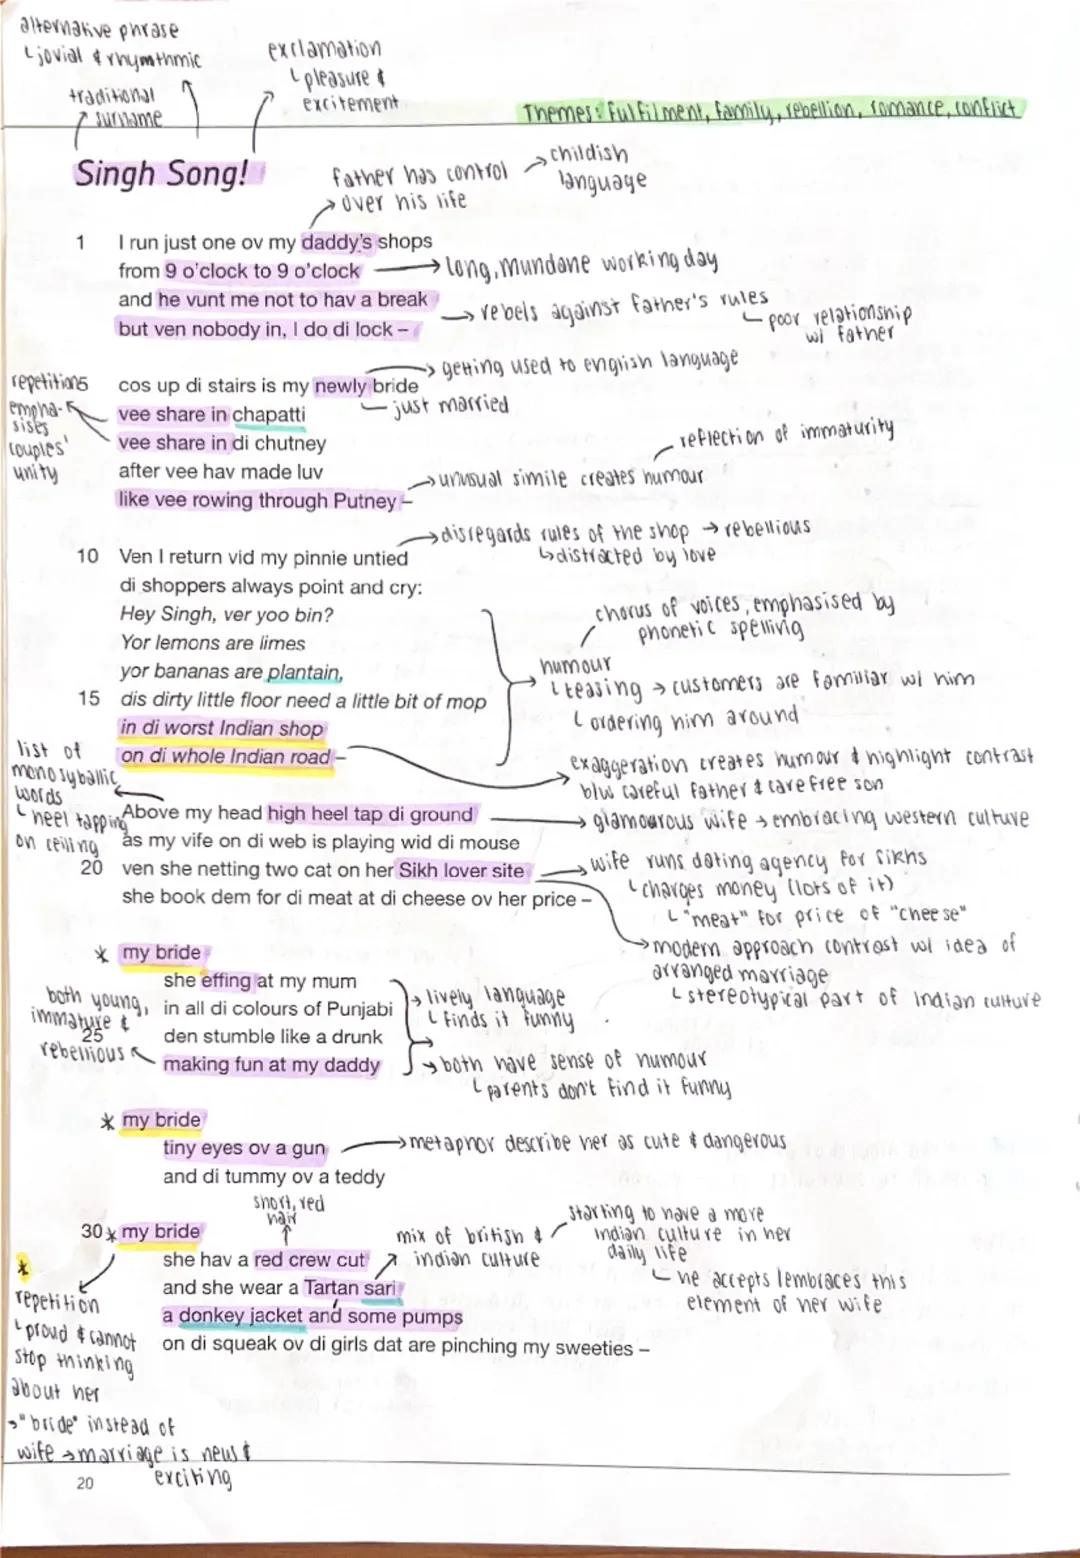 alternative phrase
↳ jovial & rhymthmic
traditional
surname
exclamation
↳ pleasure &
excitement
Themes: Fulfilment, family, rebellion, romance, conflict
Singh Song!
father has control
→ over his life
→ childish
language
1 I run just one ov my daddy's shops
from 9 o'clock to 9 o'clock
→ long, mundane working day
and he vunt me not to hav a break
but ven nobody in, I do di lock –
→ rebels against father's rules
↳ poor relationship
w/ father
→ getting used to english language
repetition
empha-
sises
couples'
unity
5 cos up di stairs is my newly bride
– just married
vee share in chapatti
vee share in di chutney
after vee hav made luv
like vee rowing through Putney –
→ unusual simile creates humour
reflection of immaturity
→ disregards rules of the shop → rebellious
↳ distracted by love
10 Ven I return vid my pinnie untied
di shoppers always point and cry:
Hey Singh, ver yoo bin?
Yor lemons are limes
yor bananas are plantain,
15 dis dirty little floor need a little bit of mop
in di worst Indian shop
on di whole Indian road –
chorus of voices, emphasised by
phonetic spelling
humour
↳ teasing → customers are familiar w/ him
↳ ordering him around
exaggeration creates humour & highlight contrast
b/w careful father & carefree son
list of
monosyballic
words
↳ heel tapping
on ceiling
Above my head high heel tap di ground
→ glamourous wife → embracing western culture
as my vife on di web is playing wid di mouse
20 ven she netting two cat on her Sikh lover site
she book dem for di meat at di cheese ov her price –
wife runs dating agency for sikhs
↳ charges money (lots of it)
↳ "meat" for price of "cheese"
→ modern approach contrast w/ idea of
arranged marriage
↳ stereotypical part of Indian culture
* my bride
she effing at my mum
in all di colours of Punjabi
25 den stumble like a drunk
making fun at my daddy
both young,
immature &
rebellious
→ lively language
↳ finds it funny
→ both have sense of humour
↳ parents don't find it funny
* my bride
tiny eyes ov a gun
→ metaphor describe her as cute & dangerous
and di tummy ov a teddy
short, red
hair
30 * my bride
she hav a red crew cut
and she wear a Tartan sari
a donkey jacket and some pumps
on di squeak ov di girls dat are pinching my sweeties –
mix of british &
indian culture
starting to have a more
indian culture in her
daily life
↳ he accepts/embraces this
element of her wife
*
repetition
↳ proud & cannot
stop thinking
about her
→ "bride" instead of
wife → marriage is new &
exciting
20